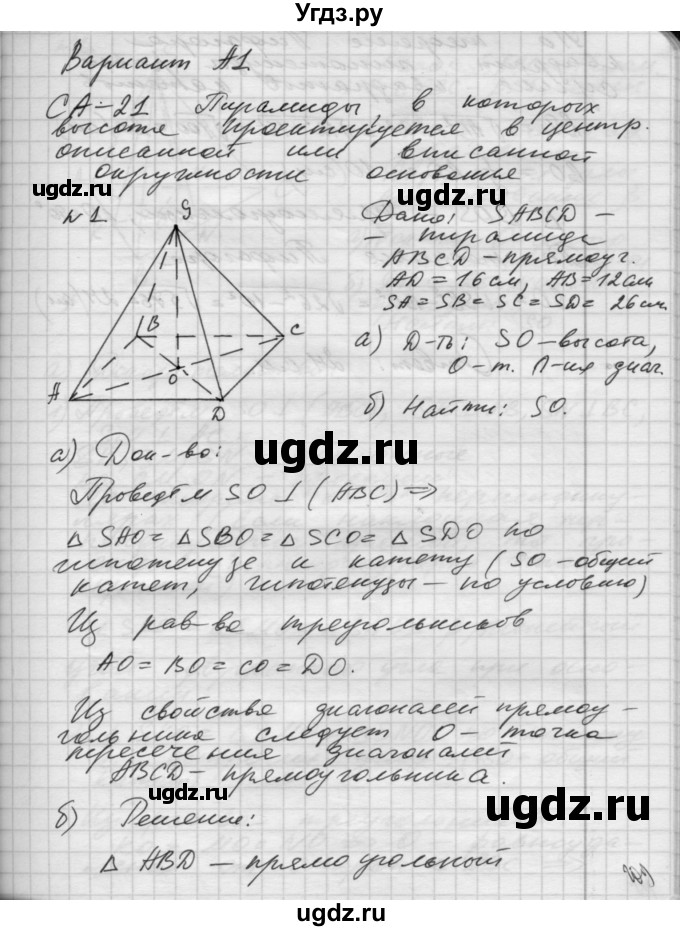 Угдз.ру
Вариант А1
СА-21 Пирамиды, в которых
высота проектируется в центр.
описанной или вписанной
окружности основанье
ugdz.ru ugdz.ru
№1
S
B
C
A
O
D
Дано: SABCD –
– пирамида
ABCD – прямоуг.
AD = 16 см, AB = 12 см
SA = SB = SC = SD = 26 см.
а) Д-ть: SO – высота,
О – т. П-ия диаг.
б) Найти: SO.
ugdz.ru ugdz.ru
а) Док-во:
Проведём SO ⊥ (ABC) ⇒
△ SAO = △ SBO = △ SCO = △ SDO по
гипотенузе и катету (SO – общий
катет, гипотенузы – по условию)
Из рав-ва треугольников
AO = BO = CO = DO.
Из свойства диагоналей прямоу-
гольника следует О – точка
пересечения диагоналей
ABCD – прямоугольника.
ugdz.ru ugdz.ru
б) Решение:
△ ABD – прямоугольный
ugdz.ru ugdz.ru